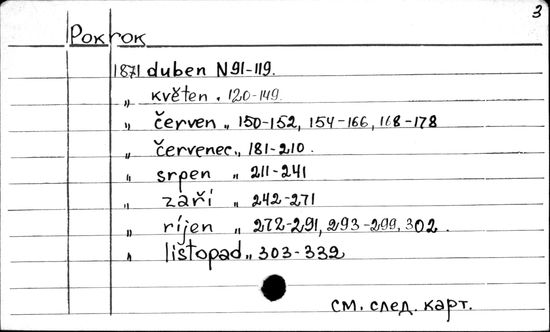 3
Pokrok
1871 duben N 91-119.
„ květen „ 120-149.
„ červen „ 150-152, 154-166, 168-178
„ červenec „ 181-210.
„ srpen „ 211-241
„ září „ 242-271
„ ríjen „ 272-291, 293-299, 302.
„ lištopad „ 303-332
см. след. карт.